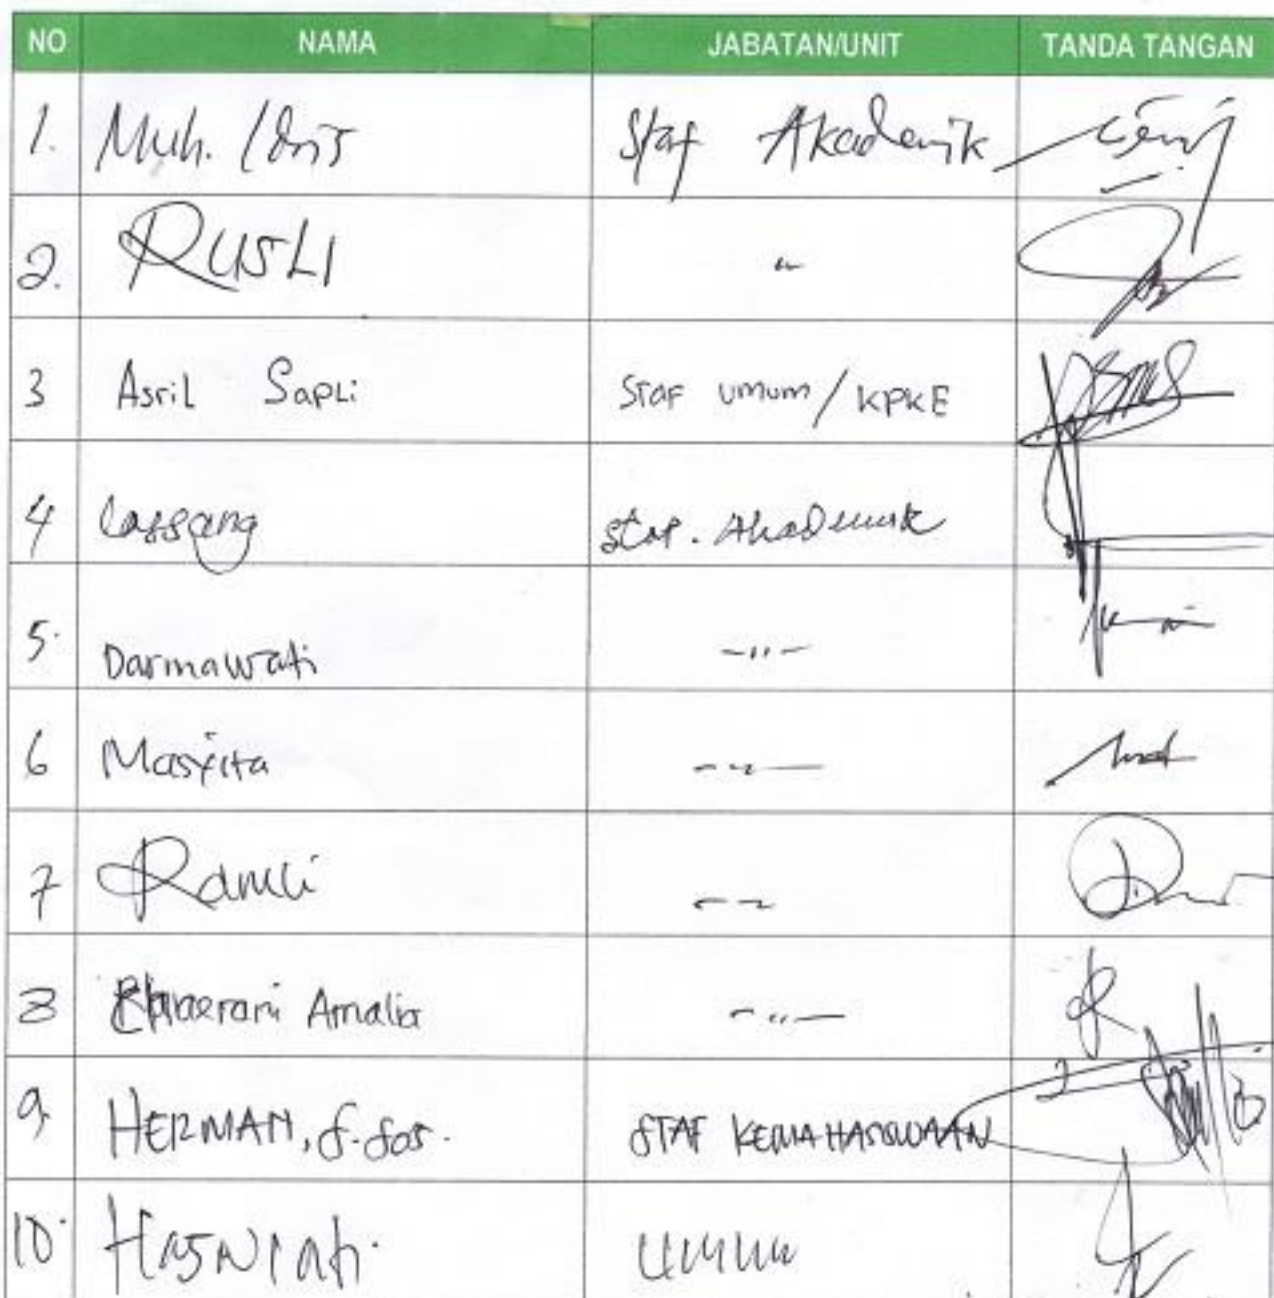 NO NAMA JABATAN/UNIT TANDA TANGAN
1. Muh. Idris Staf Akademik
2. RUSLI "
3 Asril Sapli STAF UMUM / KPKE
4 Lassang Staf. Akademik
5. Darmawati -"-
6 Masyita -"-
7 Ramli -"-
8 Khaerani Amalia -"-
9 HERMAN, S.Sos. STAF KEMAHASISWAAN
10. Hasniati. umum